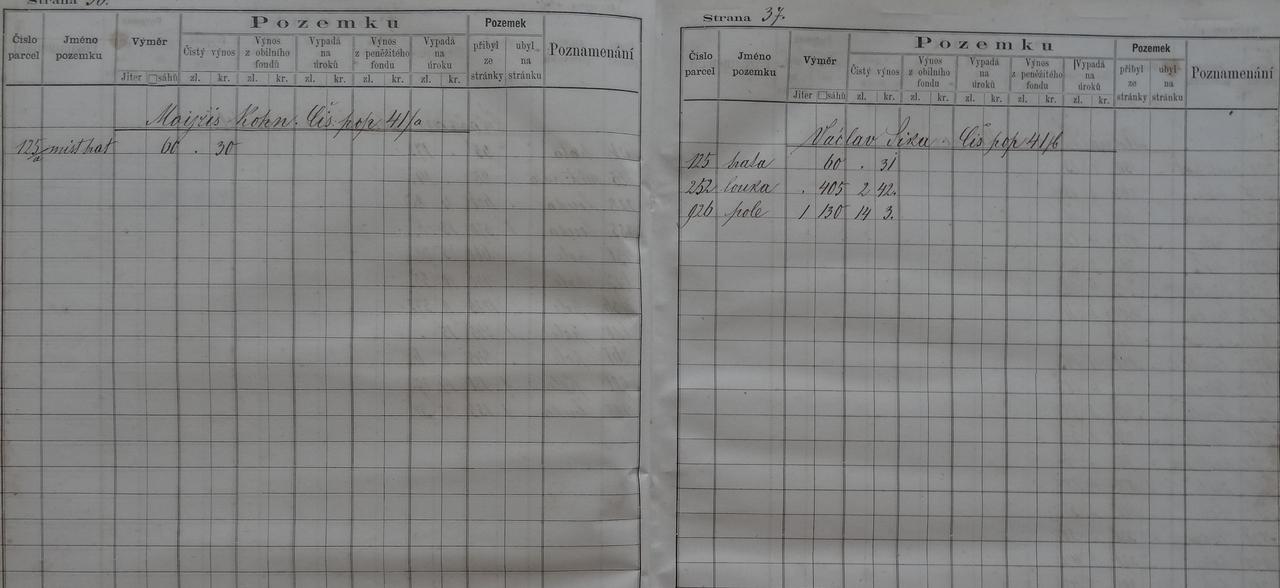 Strana 36.
Číslo parcel
Jméno pozemku
Výměr
Jiter □sáhů
Pozemku
Čistý výnos
zl. kr.
Výnos z obilního fondu
zl. kr.
Vypadá na úroků
zl. kr.
Výnos z peněžitého fondu
zl. kr.
Vypadá na úroku
zl. kr.
Pozemek
přibyl ze stránky
ubyl na stránku
Poznamenání
Kohn. Čís pop 41/a
125/a 60 . 30
Strana 37.
Číslo parcel
Jméno pozemku
Výměr
Jiter □sáhů
Pozemku
Čistý výnos
zl. kr.
Výnos z obilního fondu
zl. kr.
Vypadá na úroků
zl. kr.
Výnos z peněžitého fondu
zl. kr.
Vypadá na úroků
zl. kr.
Pozemek
přibyl ze stránky
ubyl na stránku
Poznamenání
Václav Sika. Čís pop 41/b
125 60 . 31
252 louka . 405 2 42.
926 pole 1 130 14 3.